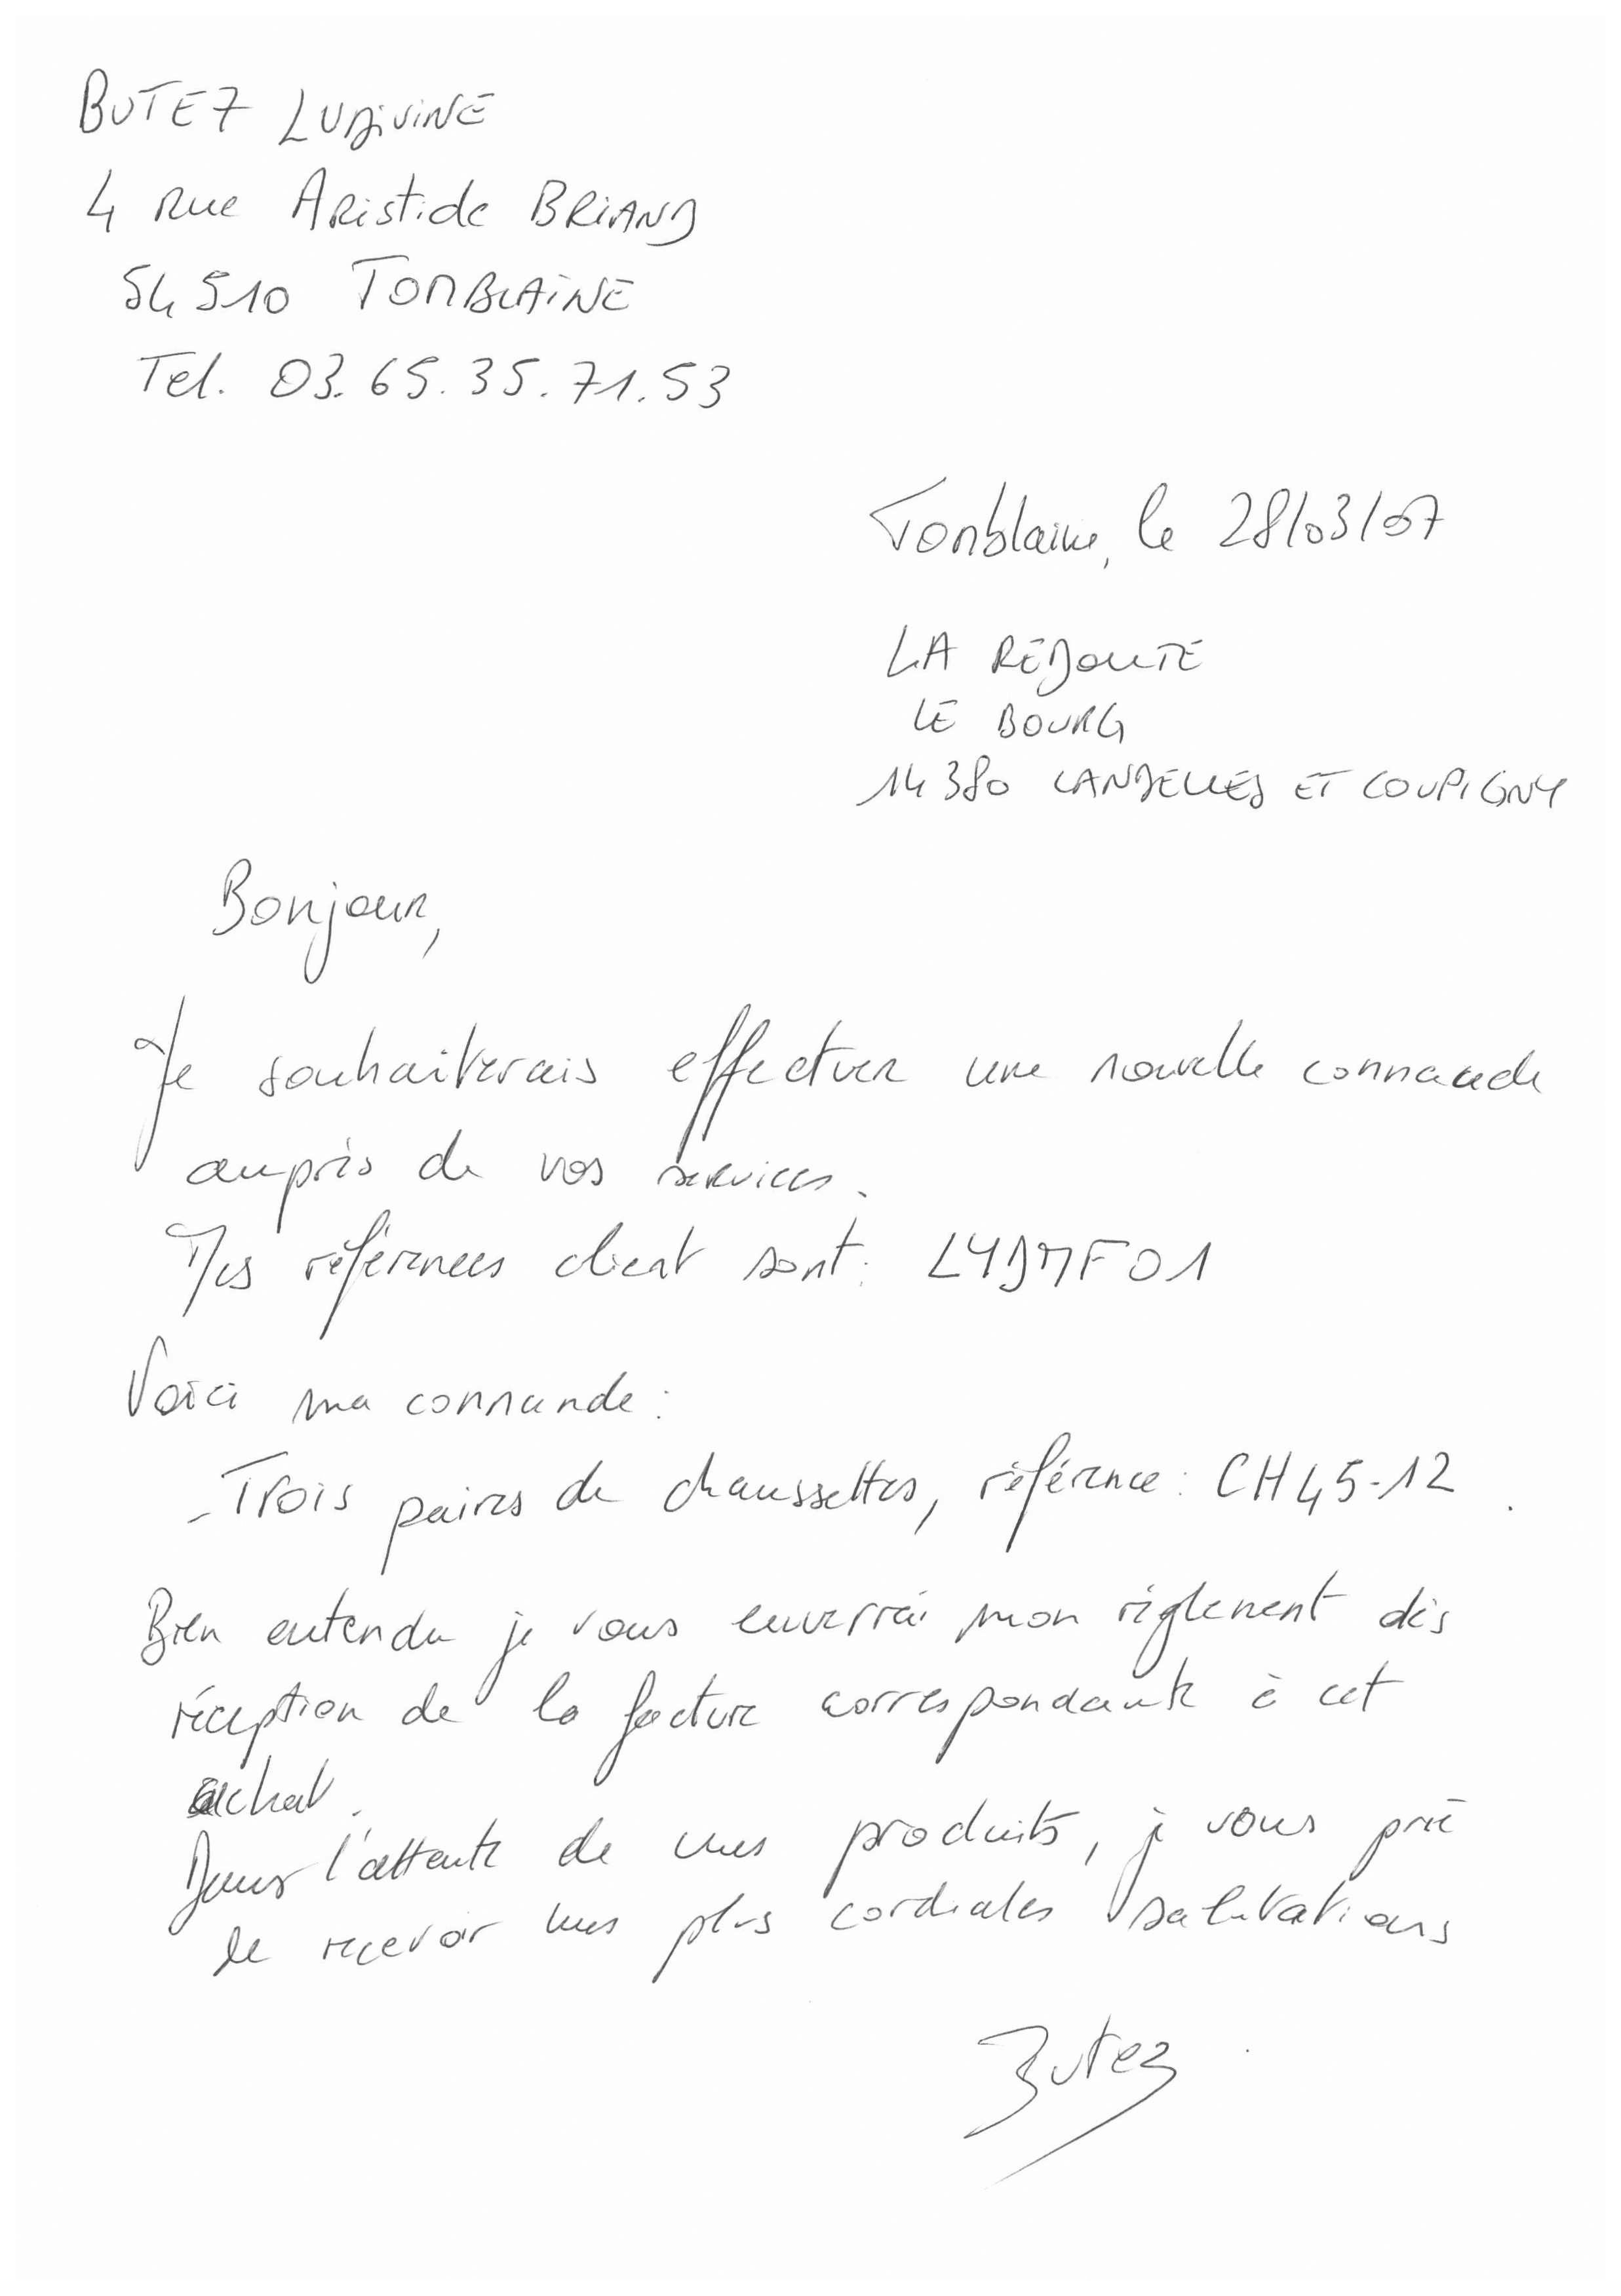 BUTEZ LUDIVINE
4 Rue Aristide BRIAND
54510 TOMBLAINE
Tel. 03.65.35.71.53
Tomblaine, le 28/03/07
LA REDOUTE
LE BOURG
14380 LANDELLES ET COUPIGNY
Bonjour,
Je souhaiterais effectuer une nouvelle commande
auprès de vos services.
Mes références client sont: LYDMF01
Voici ma commande:
- Trois paires de chaussettes, référence: CH45-12.
Bien entendu je vous enverrai mon règlement dès
réception de la facture correspondante à cet
achat.
Dans l'attente de mes produits, je vous prie
de recevoir mes plus cordiales salutations
Butez